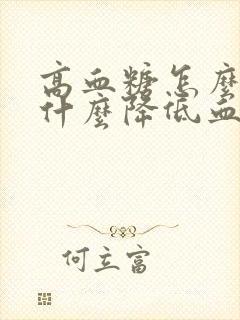 高血糖怎麼
什麼降低血
何立富